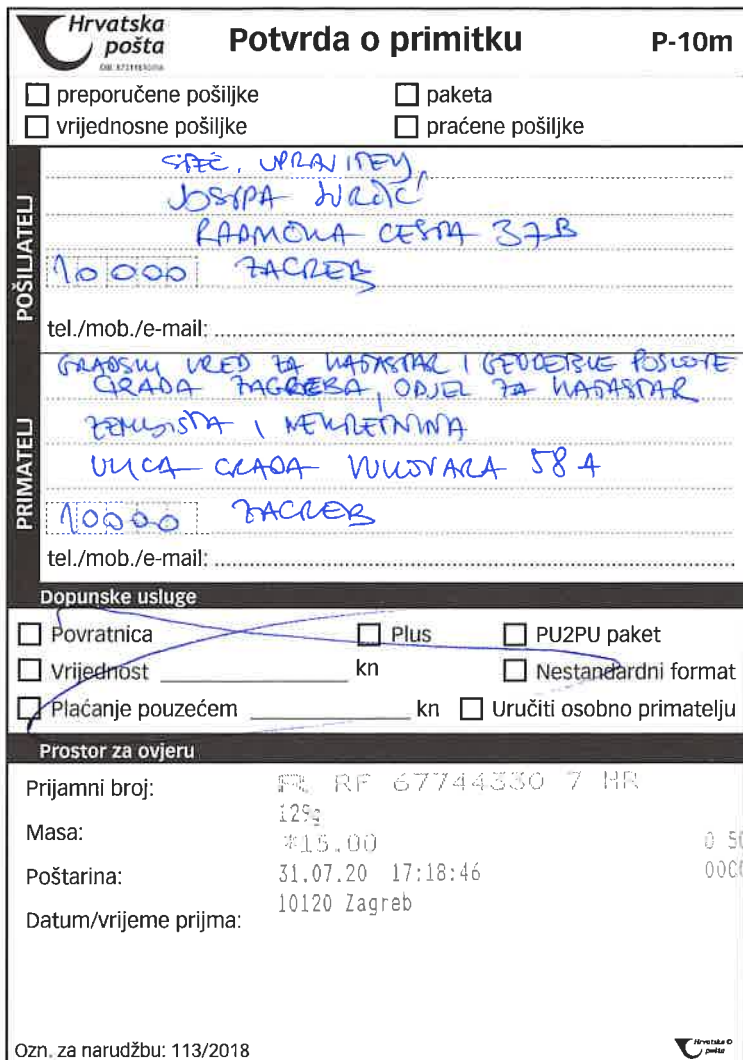 Hrvatska
pošta
Potvrda o primitku
P-10m
preporučene pošiljke
paketa
vrijednosne pošiljke
praćene pošiljke
POŠILJATELJ
STEČ. UPRAVITELJ,
JOSIPA JURČIĆ
RADNIČKA CESTA 37B
10000 ZAGREB
tel./mob./e-mail:
PRIMATELJ
GRADSKI URED ZA KATASTAR I GEODETSKE POSLOVE
GRADA ZAGREBA, ODJEL ZA KATASTAR
ZEMLJIŠTA I NEKRETNINA
ULICA GRADA VUKOVARA 58 A
10000 ZAGREB
tel./mob./e-mail:
Dopunske usluge
Povratnica
Plus
PU2PU paket
Vrijednost kn
Nestandardni format
Plaćanje pouzećem kn
Uručiti osobno primatelju
Prostor za ovjeru
Prijamni broj: RF 67744330 7 HR
129g
Masa:
*15.00
0 50
Poštarina:
31.07.20 17:18:46
000
10120 Zagreb
Datum/vrijeme prijma:
Ozn. za narudžbu: 113/2018
Hrvatska
pošta